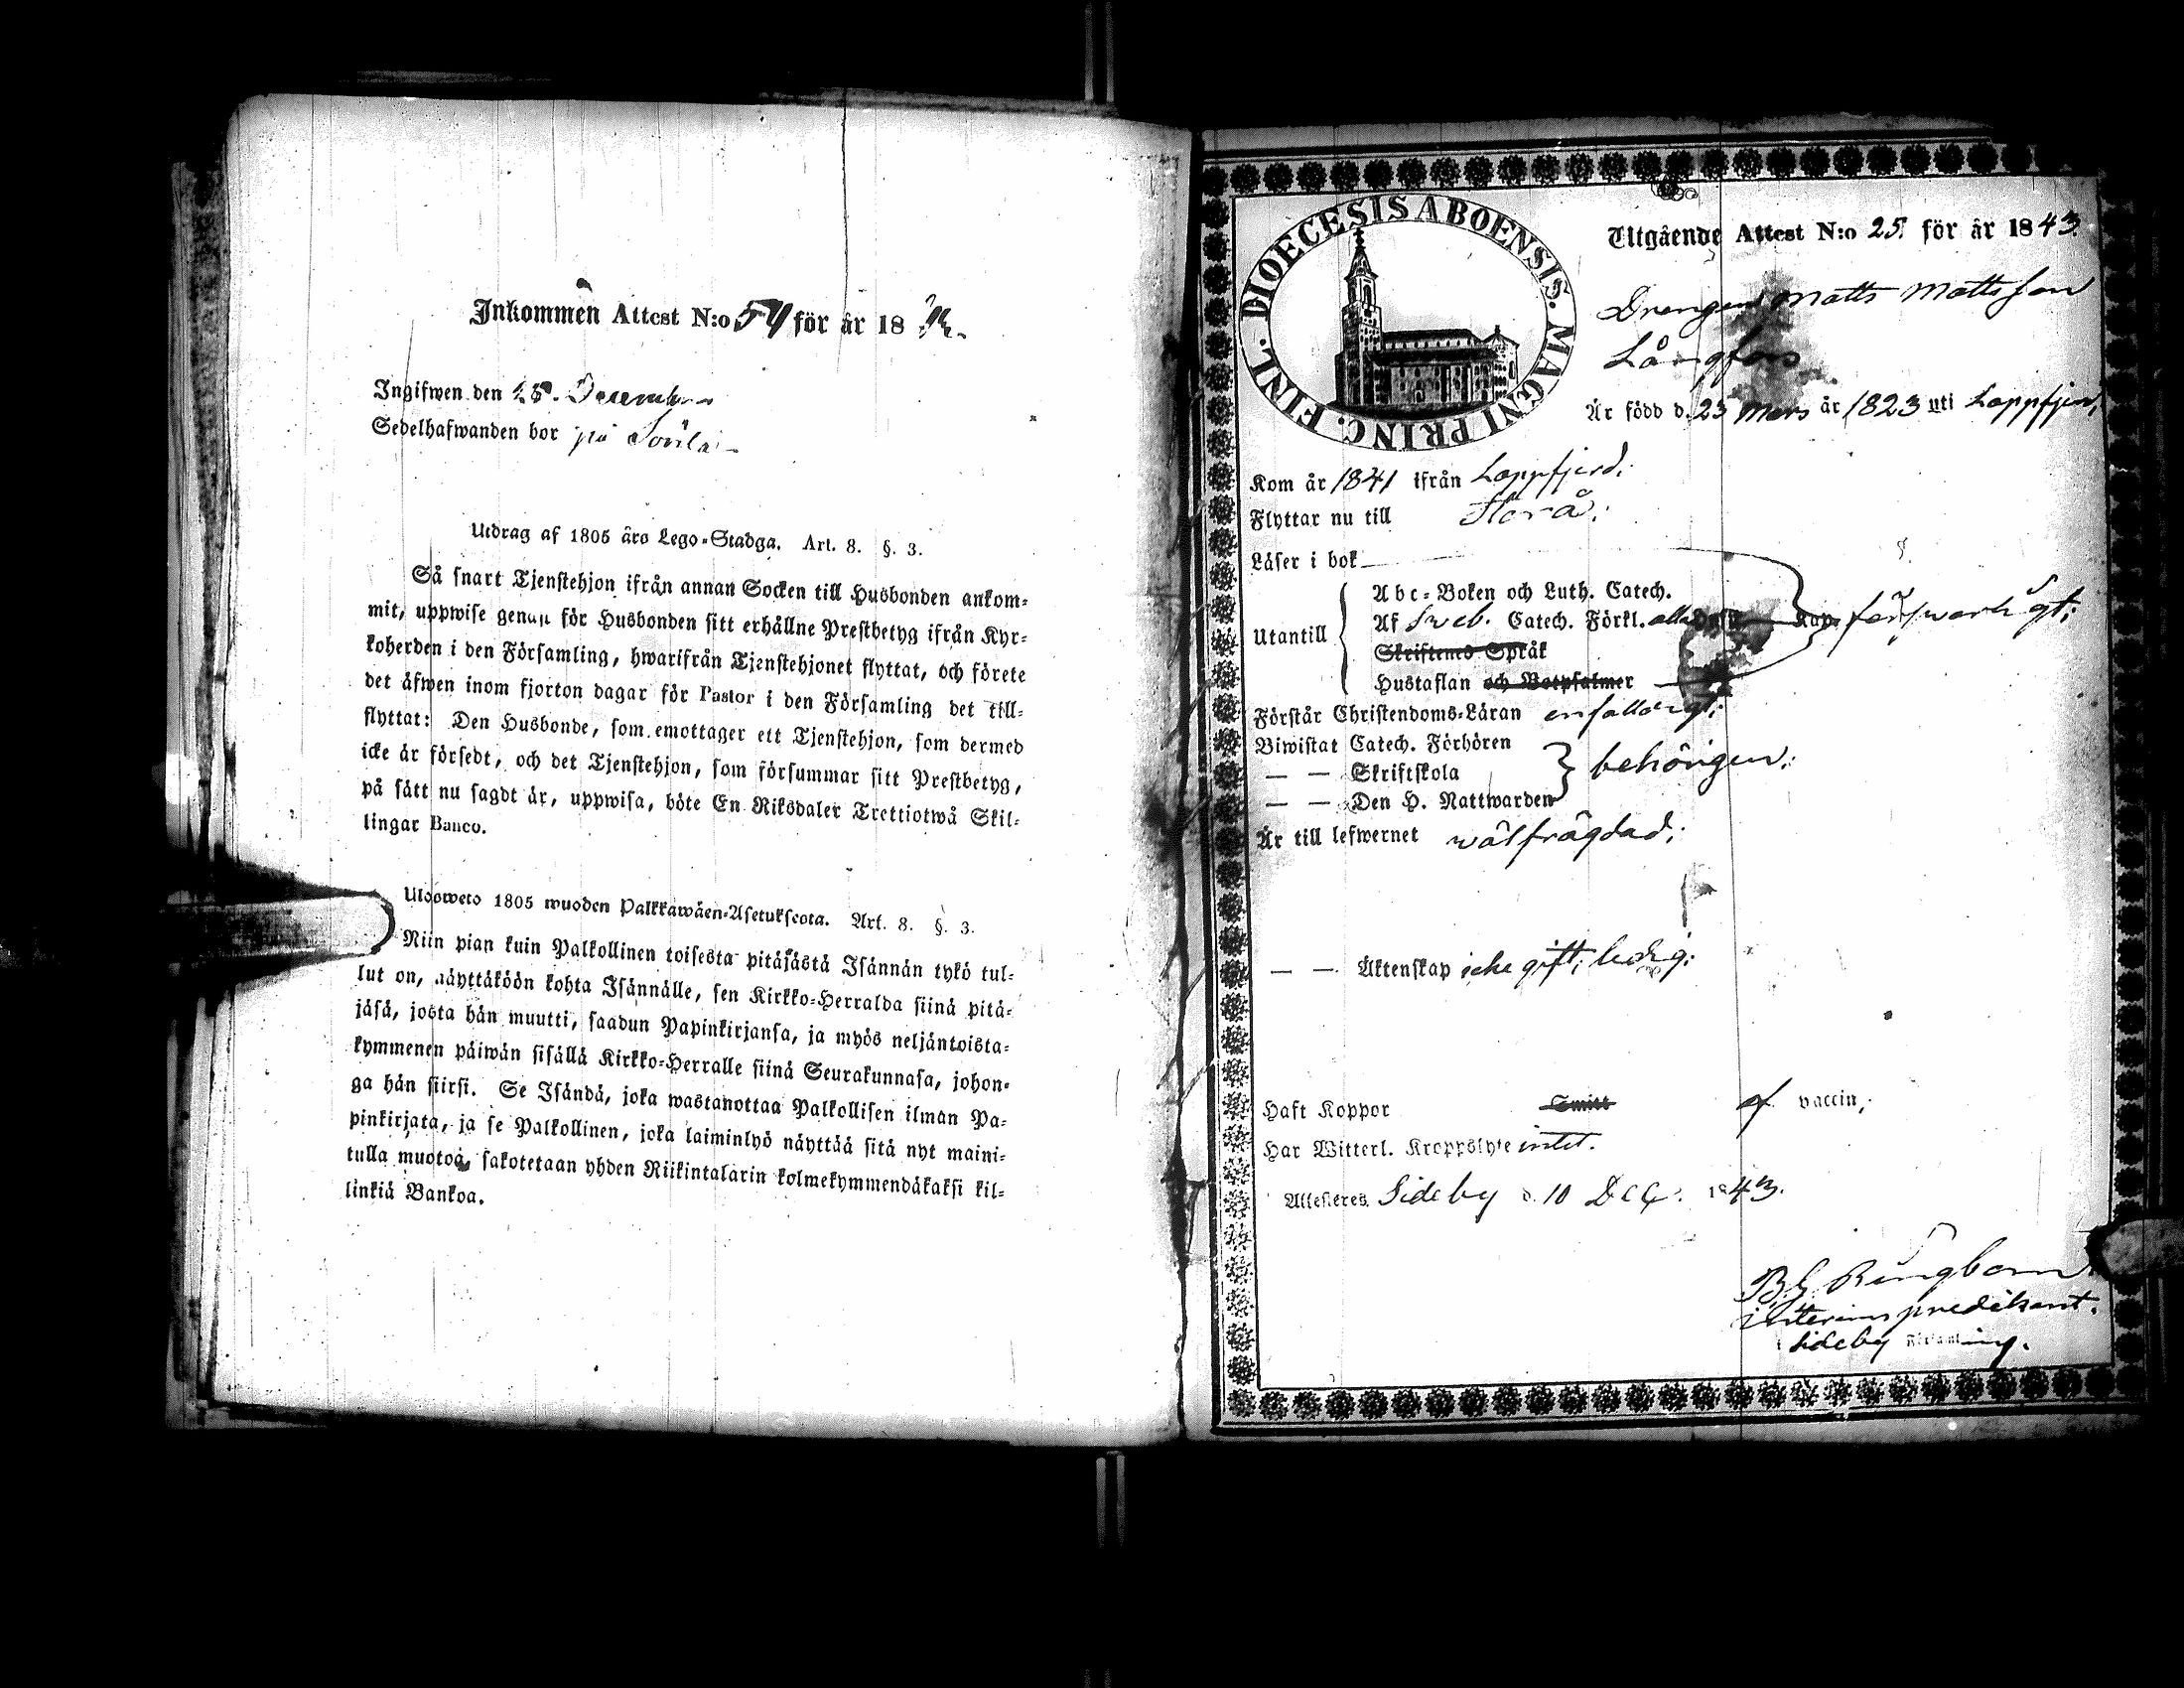 Inkommen Attest N:o 54 för år 18
Ingifwen den 28. December
Sedelhafwanden bor på
Utdrag af 1805 års Lego-Stadga. Art. 8. §. 3.
Så snart Tjenstehjon ifrån annan Socken till Husbonden ankom-
mit, uppwise genast för Husbonden sitt erhållne Prestbetyg ifrån Kyr-
koherden i den Församling, hwarifrån Tjenstehjonet flyttat, och förete
det äfwen inom fjorton dagar för Pastor i den Församling det till-
flyttat: Den Husbonde, som emottager ett Tjenstehjon, som dermed
icke är försedt, och det Tjenstehjon, som försummar sitt Prestbetyg,
på sätt nu sagdt är, uppwisa, böte En Riksdaler Trettiotwå Skil-
lingar Banco.
Ulosweto 1805 wuoden Palkkawäen-Asetuksesta. Art. 8. §. 3.
Niin pian kuin Palkollinen toisesta pitäjästä Isännän tykö tul-
lut on, näyttäköön kohta Isännälle, sen Kirkko-Herralda siinä pitä-
jäsä, josta hän muutti, saadun Papinkirjansa, ja myös neljäntoista-
kymmenen päiwän sisällä Kirkko-Herralle siinä Seurakunnasa, johon-
ga hän siirsi. Se Isändä, joka wastanottaa Palkollisen ilman Pa-
pinkirjata, ja se Palkollinen, joka laiminlyö näyttää sitä nyt maini-
tulla muotoa, sakotetaan yhden Riikintalarin kolmekymmendäkaksi kil-
linkiä Bankoa.
DIOECESIS ABOENSIS. MAGNI PRINC. FINL.
Utgående Attest N:o 25. för år 1843
Drengen Matts Mattsson
Långfors
Är född d. 23 Mars år 1823 uti Lappfjerd,
Kom år 1841 ifrån Lappfjerd;
Flyttar nu till Storå;
Läser i bok
Abc-Boken och Luth. Catech.
Utantill Af Sweb. Catech. Förkl. alla Kap. förswarligt;
Skriftenes Språk
Hustaflan och Botpsalmer
Förstår Christendoms-Läran enfalldigt;
Biwistat Catech. Förhören
— — Skriftskola behörigen;
— — Den H. Nattwarden
Är till lefwernet wälfrägdad;
— — Äktenskap icke gift; ledig;
Haft Koppor Smitt af vaccin;
Har Witterl. Kroppslyte intet.
Attesteres Sideby d. 10 Dec. 1843.
B. G. Ringbom
interims predikant.
i Sideby Församling.